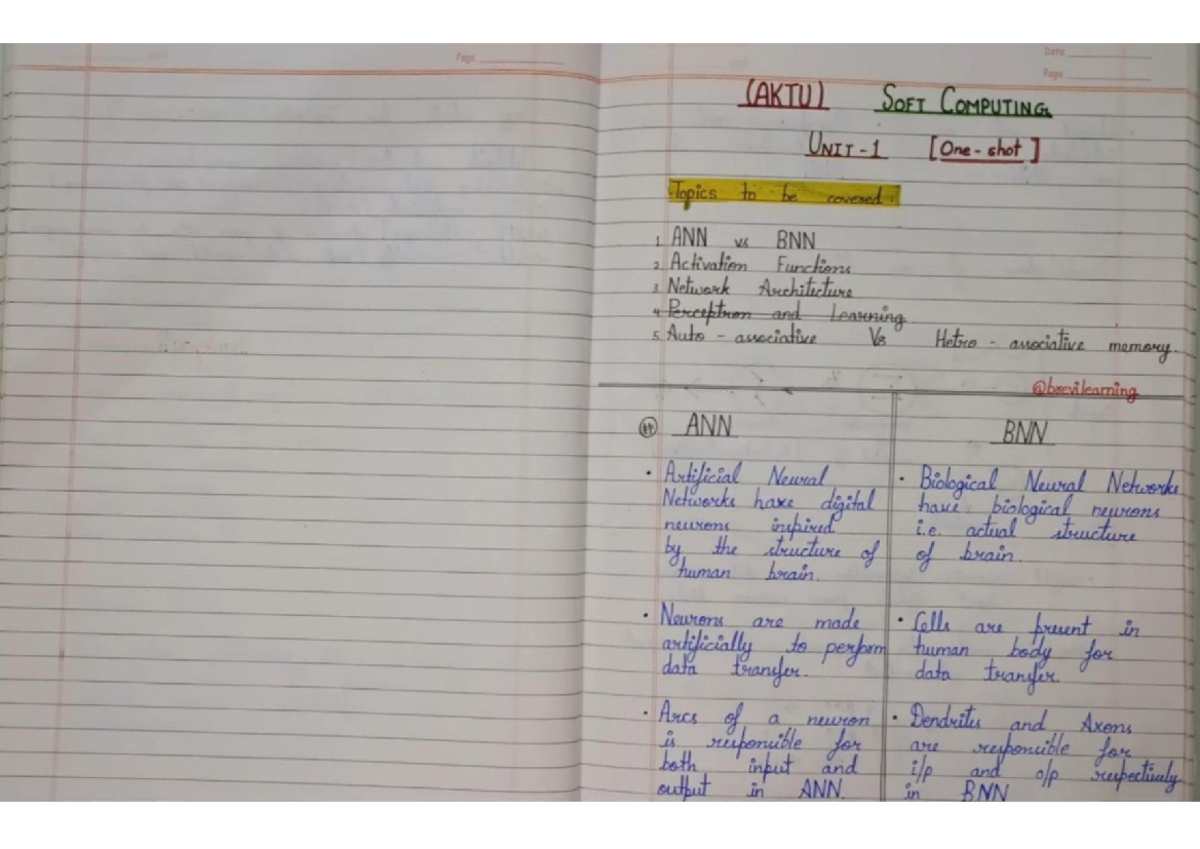 Page
Date
Page
(AKTU) SOFT COMPUTING
UNIT-1 [One-shot]
Topics to be covered:
1. ANN vs BNN
2. Activation Functions
3. Network Architecture
4. Perceptron and Learning
5. Auto - associative Vs Hetro - associative memory.
@brevilearning
# ANN BNN
• Artificial Neural
Networks have digital
neurons inspired
by the structure of
human brain.
• Biological Neural Networks
have biological neurons
i.e. actual structure
of brain.
• Neurons are made
artificially to perform
data transfer.
• Cells are present in
human body for
data transfer.
• Arcs of a neuron
is responsible for
both input and
output in ANN.
• Dendrites and Axons
are responsible for
i/p and o/p respectively
in BNN